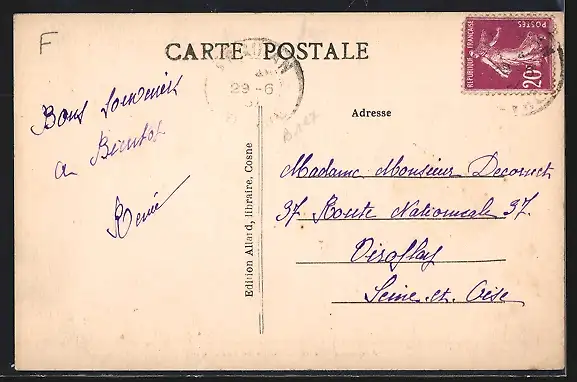 F
CARTE POSTALE
29-6
REPUBLIQUE FRANÇAISE
POSTES
20c
Bons souvenirs
a Bientot
Renée
Edition Allard, libraire, Cosne
Adresse
Madame Monsieur Decornet
37 Route Nationale 37.
Viroflay
Seine-et-Oise